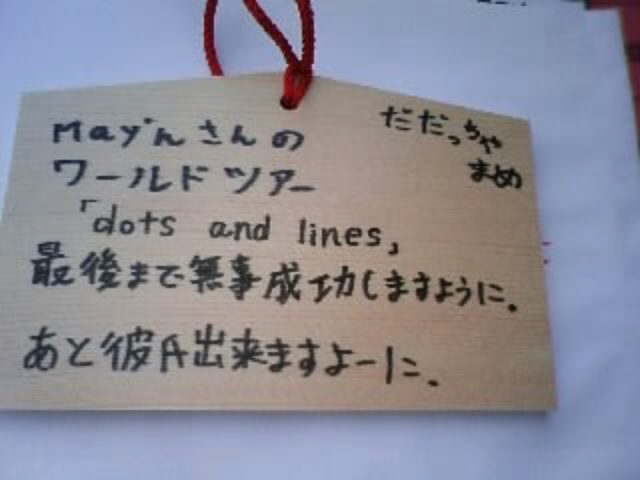 May'nさんの
ワールドツアー
「dots and lines」
最後まで無事成功しますように.
あと彼氏出来ますよーに.
だだっちゃ
まめ